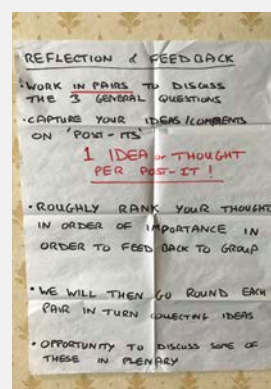 REFLECTION & FEEDBACK
• WORK IN PAIRS TO DISCUSS
THE 3 GENERAL QUESTIONS
• CAPTURE YOUR IDEAS/COMMENTS
ON 'POST-ITS'
1 IDEA or THOUGHT
PER POST-IT !
• ROUGHLY RANK YOUR THOUGHTS
IN ORDER OF IMPORTANCE IN
ORDER TO FEED BACK TO GROUP
• WE WILL THEN GO ROUND EACH
PAIR IN TURN COLLECTING IDEAS
• OPPORTUNITY TO DISCUSS SOME OF
THESE IN PLENARY